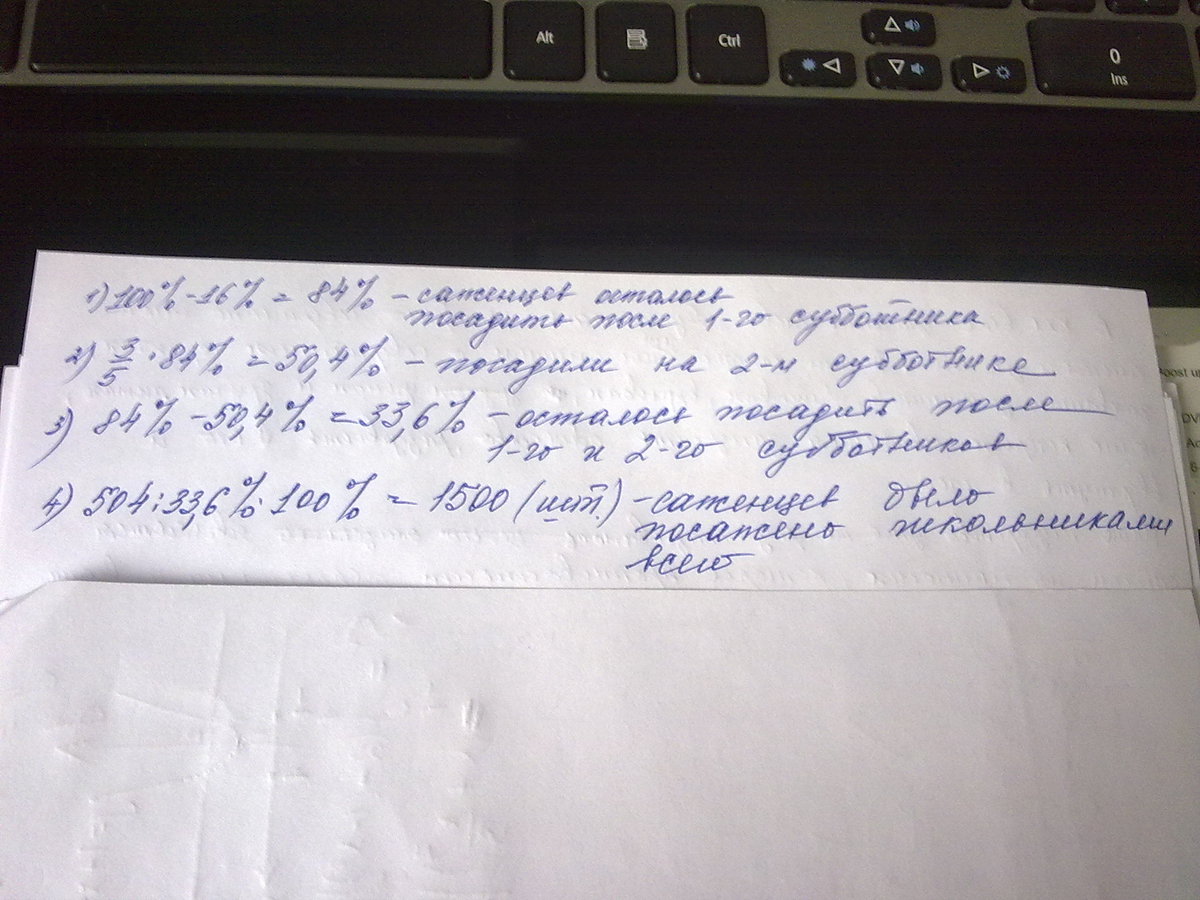 Alt
Ctrl
0
Ins
1) 100% - 16% = 84% - саженцев осталось
посадить после 1-го субботника
2) 3/5 · 84% = 50,4% - посадили на 2-м субботнике
3) 84% - 50,4% = 33,6% - осталось посадить после
1-го и 2-го субботников
4) 504 : 33,6% · 100% = 1500 (шт.) - саженцев было
посажено школьниками
всего